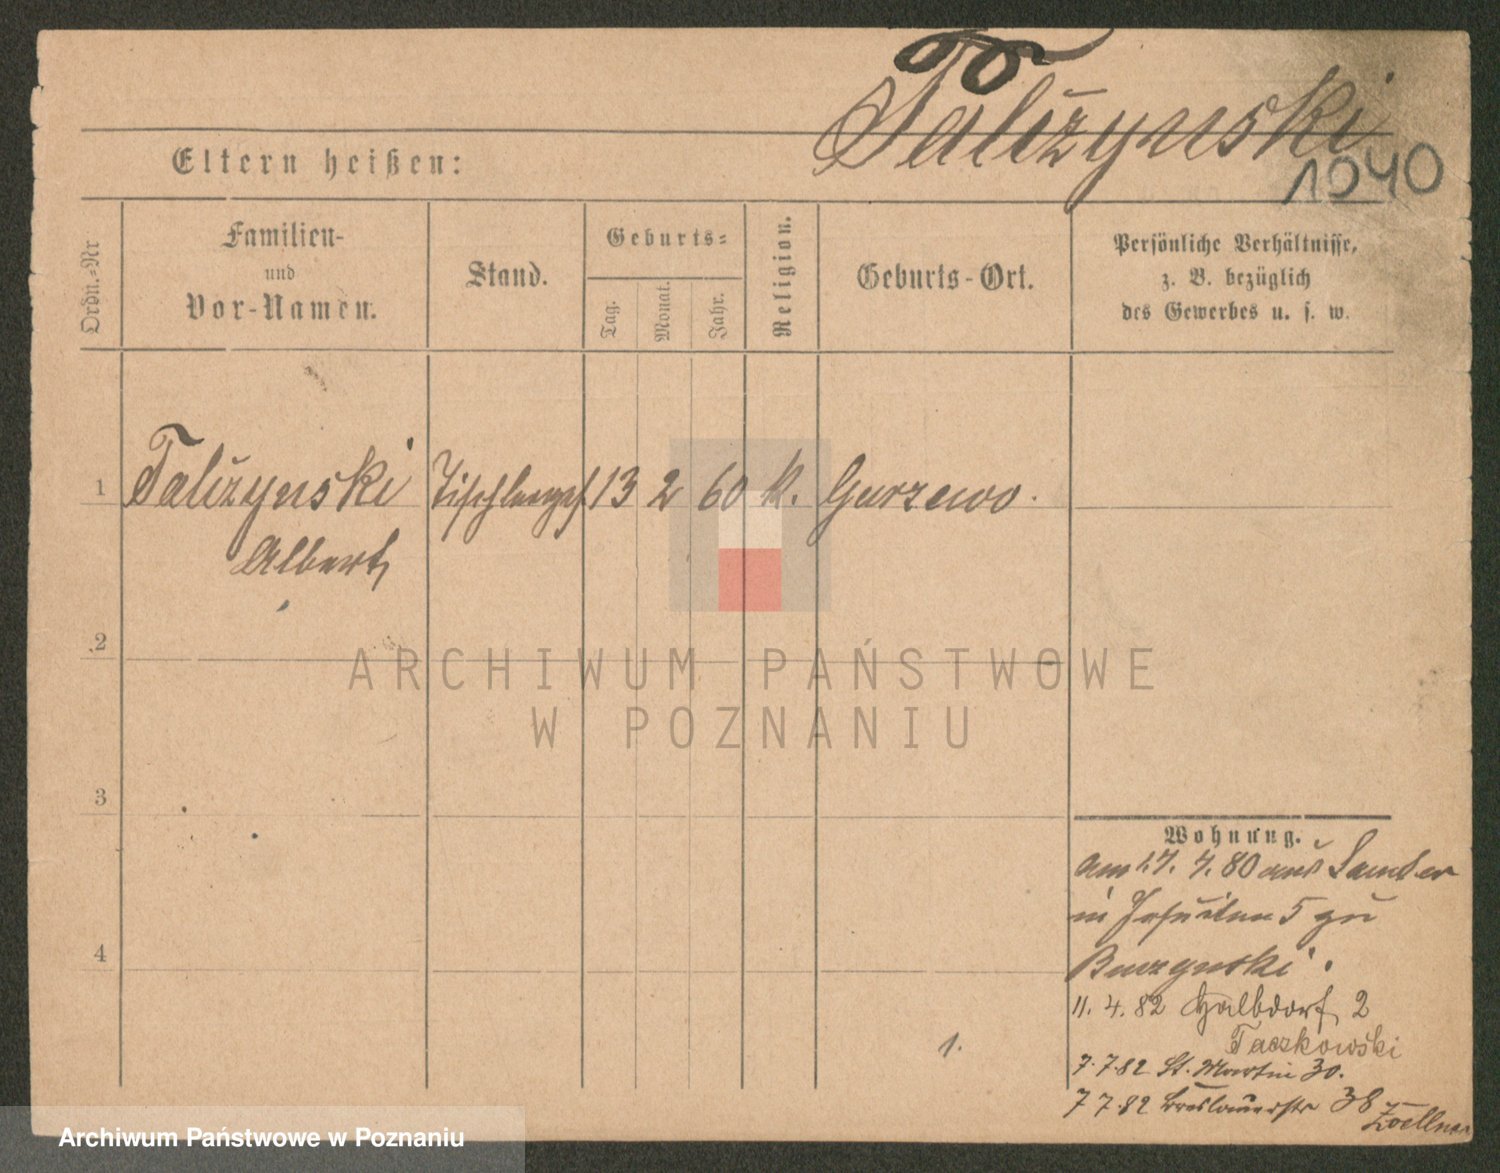 Talizynski
1040
Eltern heißen:
Ordn.-Nr
Familien-
und
Vor-Namen.
Stand.
Geburts-
Tag.
Monat.
Jahr.
Religion.
Geburts-Ort.
Persönliche Verhältnisse,
z. B. bezüglich
des Gewerbes u. s. w.
1 Talizynski Tischlerges. 13 2 60 k. Gurzewo.
Albert
2
3
4
Wohnung.
am 17. 7. 80 aus Samter
in Jesuiten 5 zu
Buczynski.
11. 4. 82 Halbdorf 2
Taczkowski
7. 7. 82 St. Martin 30.
7 7. 82 Breslauerstr 38
Zoellner
1.
ARCHIWUM PAŃSTWOWE
W POZNANIU
Archiwum Państwowe w Poznaniu